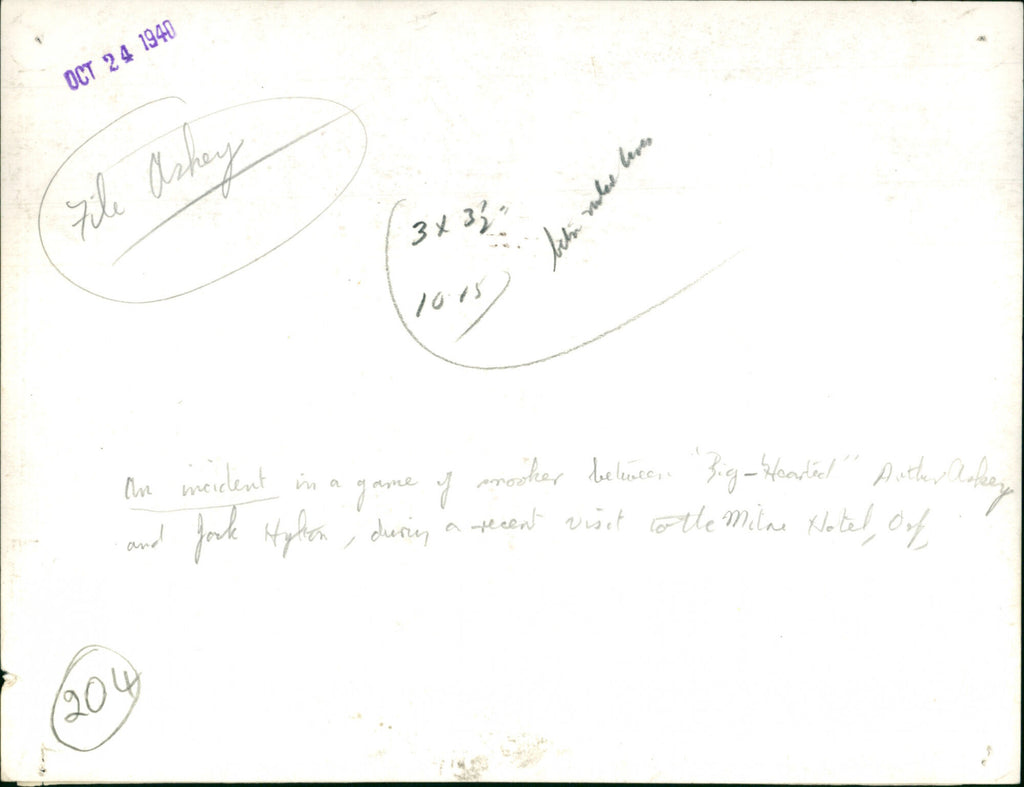 OCT 24 1940
File Askey
3 x 3½"
betn ruled lines
10.15
An incident in a game of snooker between "Big-Hearted" Arthur Askey
and Jack Hylton, during a recent visit to the Hotel,
204